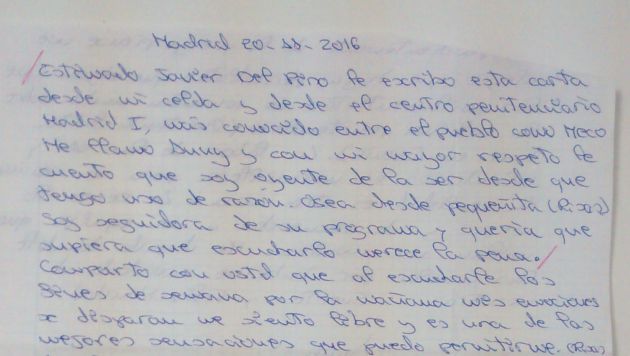 Madrid 20-11-2016
Estimado Javier Del Pino le escribo esta carta
desde mi celda y desde el centro penitenciario
Madrid I, más conocido entre el pueblo como Meco
Me llamo Dumy y con mi mayor respeto le
cuento que soy oyente de la ser desde que
tengo uso de razón. Osea desde pequeñita (Risas)
Soy seguidora de su programa y quería que
supiera que escucharlo merece la pena.
Comparto con usted que al escucharle los
fines de semana por la mañana mis emociones
se disparan me siento libre y es una de las
mejores sensaciones que puedo permitirme. (Risas)